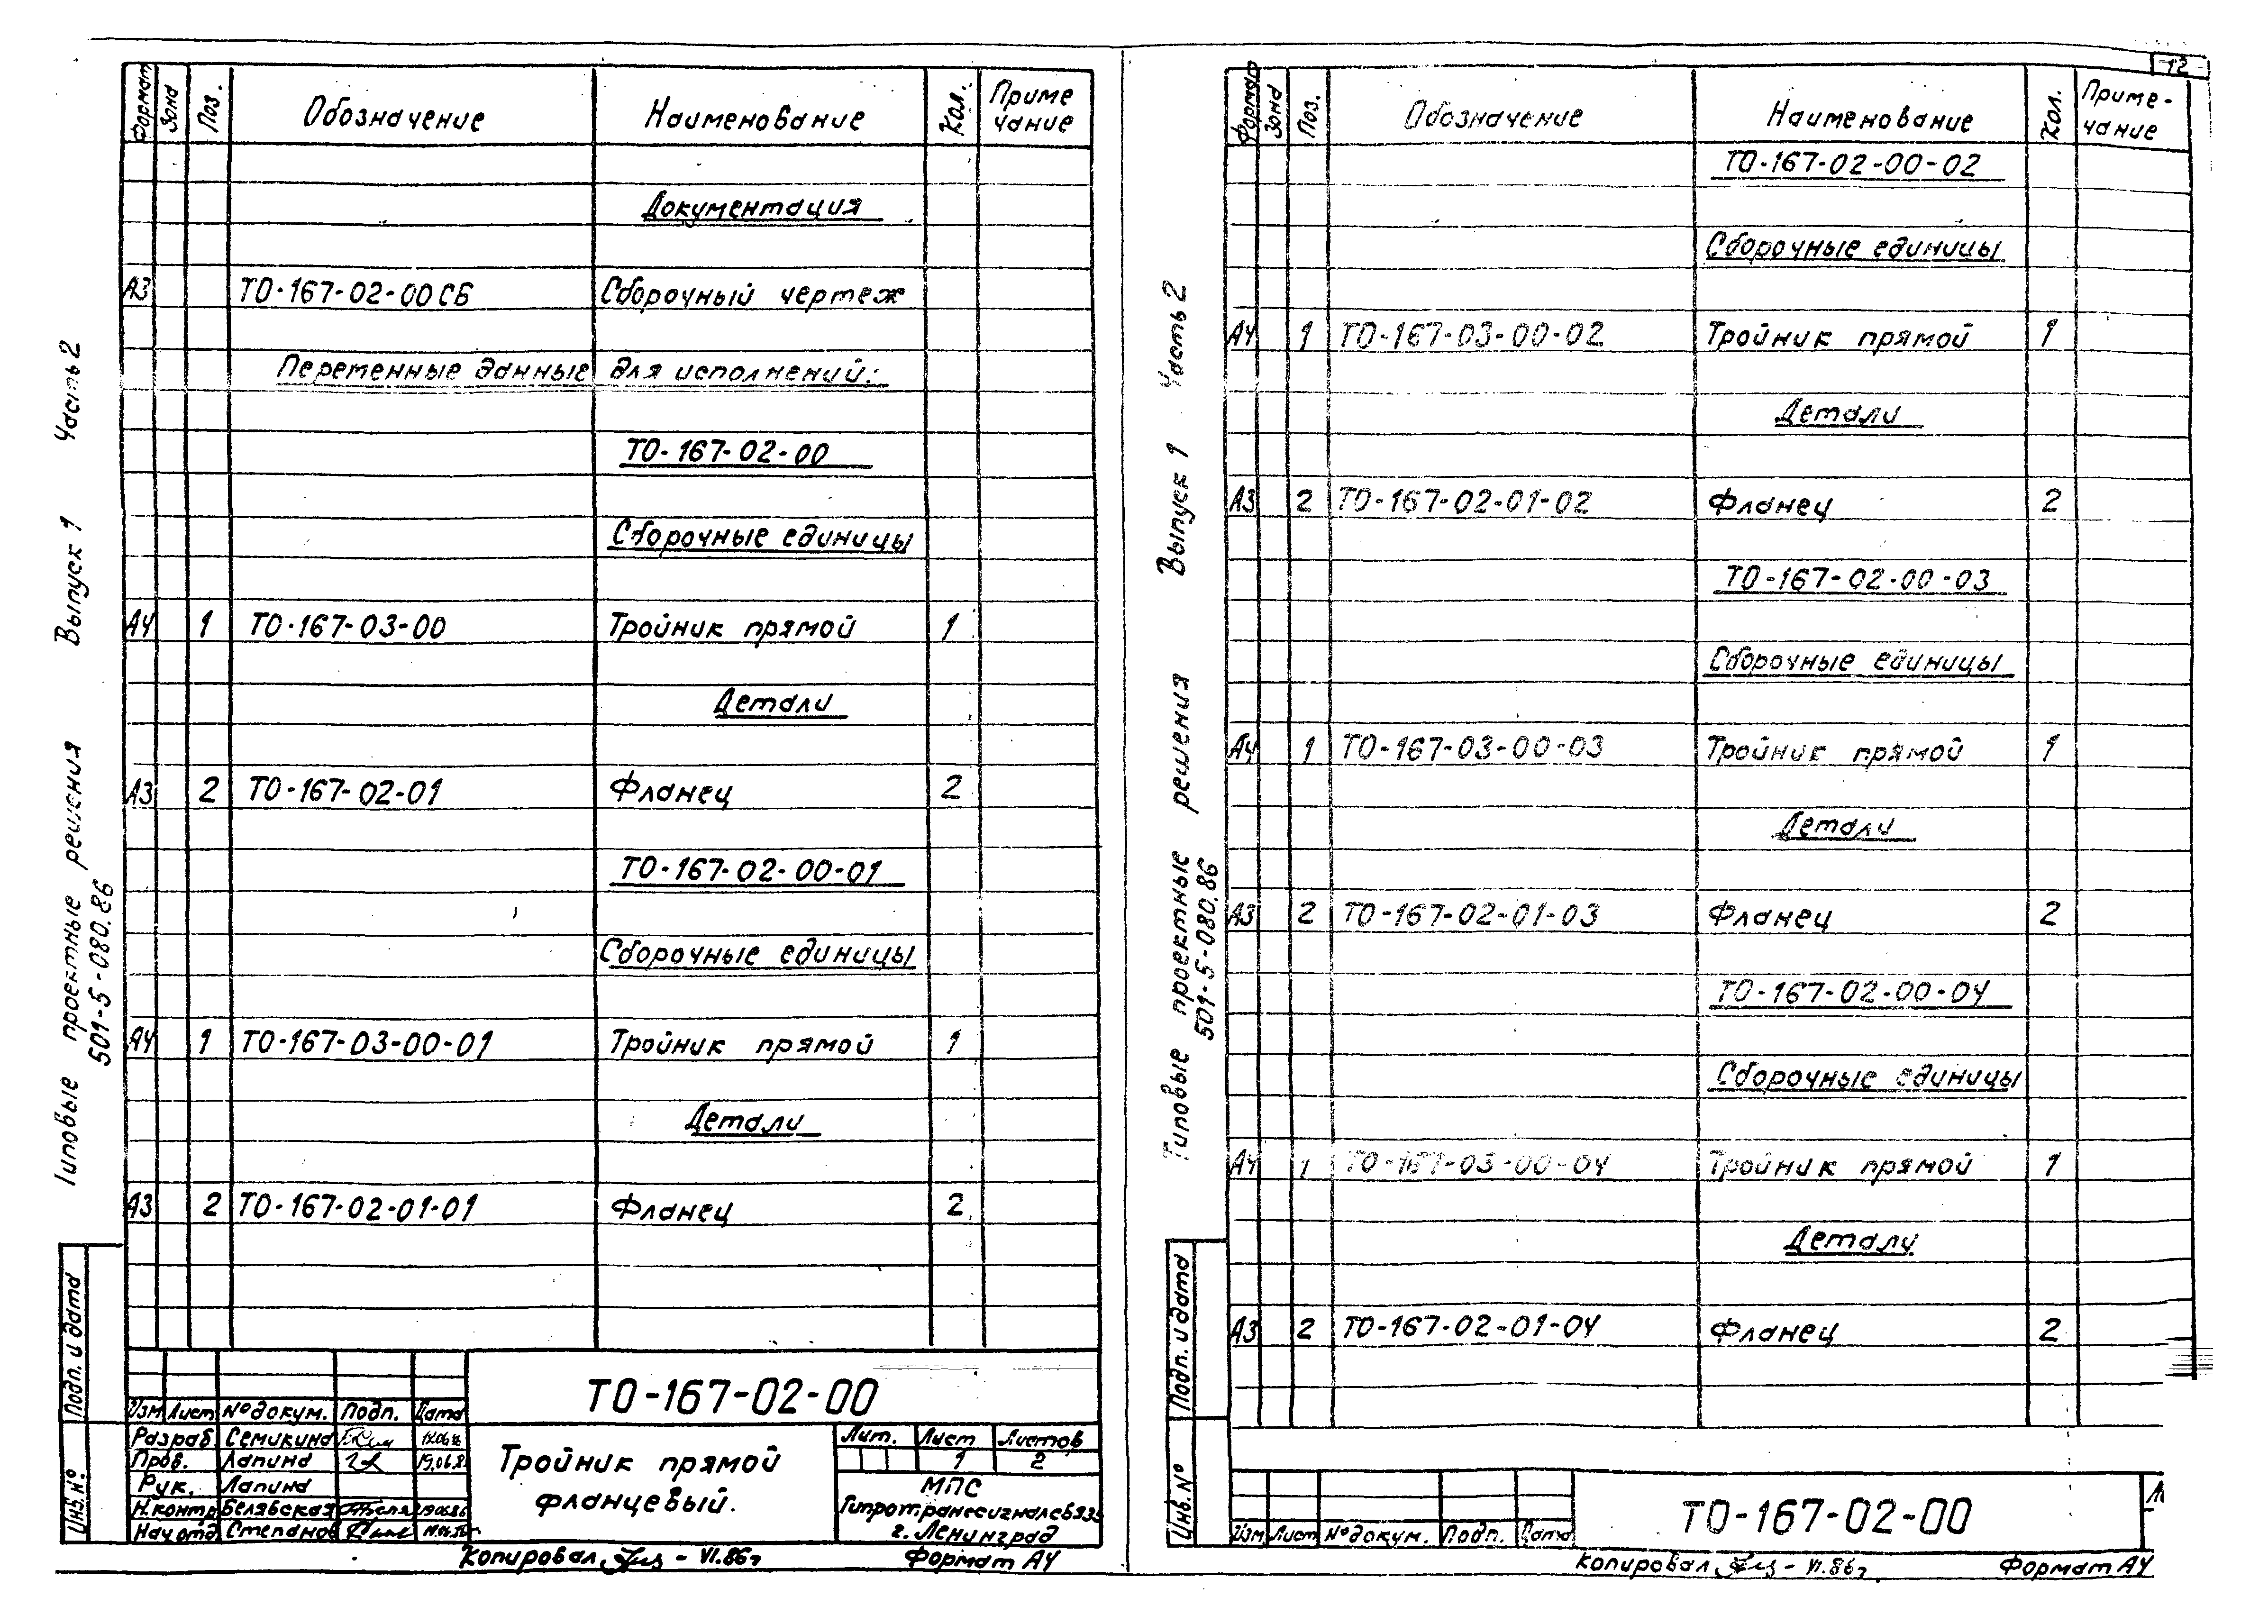 Формат Зона Поз. Обозначение Наименование Кол. Приме чание
Документация
А3 ТО-167-02-00 СБ Сборочный чертеж
Переменные данные для исполнений:
ТО-167-02-00
Сборочные единицы
А4 1 ТО-167-03-00 Тройник прямой 1
Детали
А3 2 ТО-167-02-01 Фланец 2
ТО-167-02-00-01
Сборочные единицы
А4 1 ТО-167-03-00-01 Тройник прямой 1
Детали
А3 2 ТО-167-02-01-01 Фланец 2
Типовые проектные решения Выпуск 1 Часть 2
501-5-080.86
Подп. и дата
Инв. №
ТО-167-02-00
Изм Лист № докум. Подп. Дата
Разраб Семикина
Пров. Лапина 19.06.8
Рук. Лапина
Н.контр Белявская
Нач отд Степанов
Тройник прямой
фланцевый.
Лит. Лист Листов
1 2
МПС
Гипротранссигналсвязь
г. Ленинград
Копировал - VI.86г Формат А4
12
Формат Зона Поз. Обозначение Наименование Кол. Приме-
чание
ТО-167-02-00-02
Сборочные единицы
А4 1 ТО-167-03-00-02 Тройник прямой 1
Детали
А3 2 ТО-167-02-01-02 Фланец 2
ТО-167-02-00-03
Сборочные единицы
А4 1 ТО-167-03-00-03 Тройник прямой 1
Детали
А3 2 ТО-167-02-01-03 Фланец 2
ТО-167-02-00-04
Сборочные единицы
А4 1 ТО-167-03-00-04 Тройник прямой 1
Детали
А3 2 ТО-167-02-01-04 Фланец 2
Типовые проектные решения Выпуск 1 Часть 2
501-5-080.86
Подп. и дата
Инв. №
Изм Лист № докум. Подп. Дата
ТО-167-02-00
Копировал - VI.86г. Формат А4